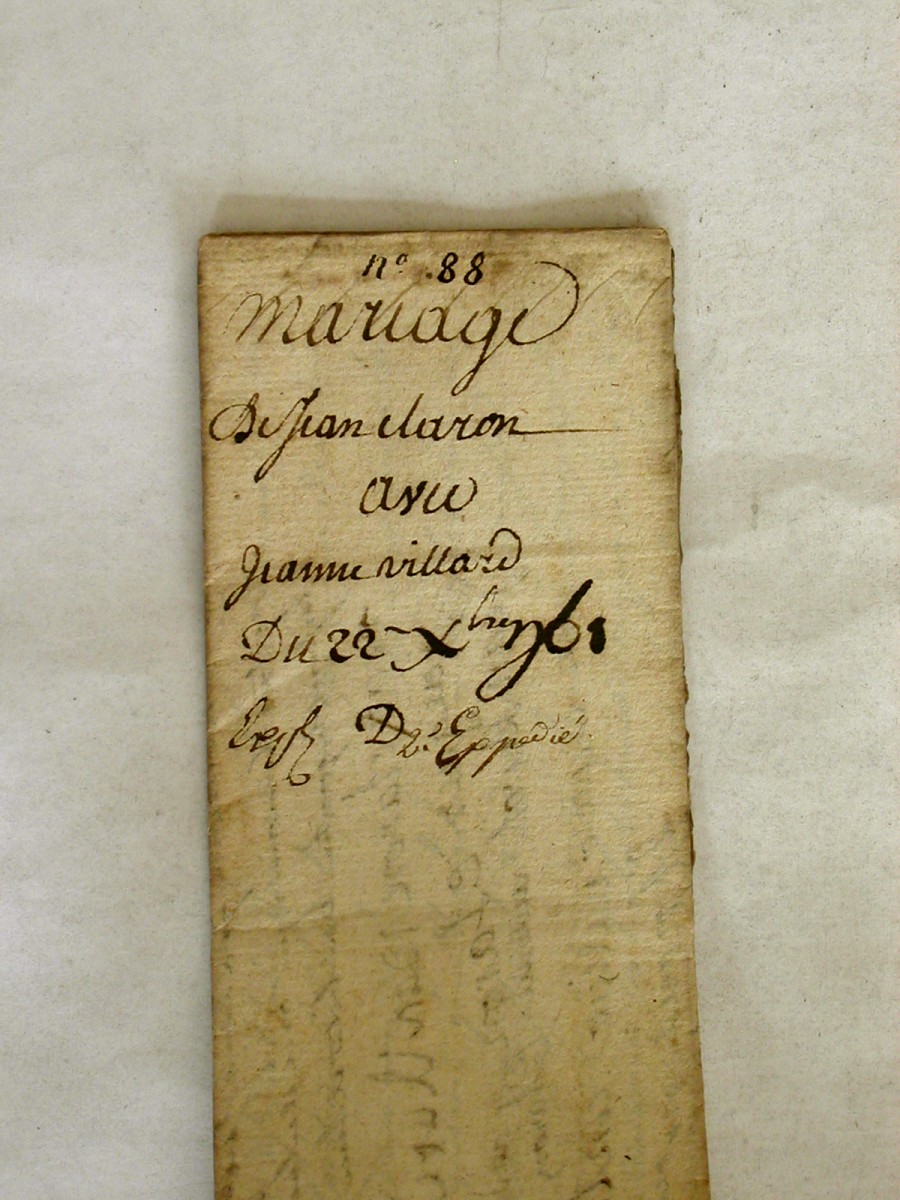 nº .88
mariage
De Jean claron
avec
Jeanne villard
Du 22 Xbre 1761
Exp D 2e Expedié